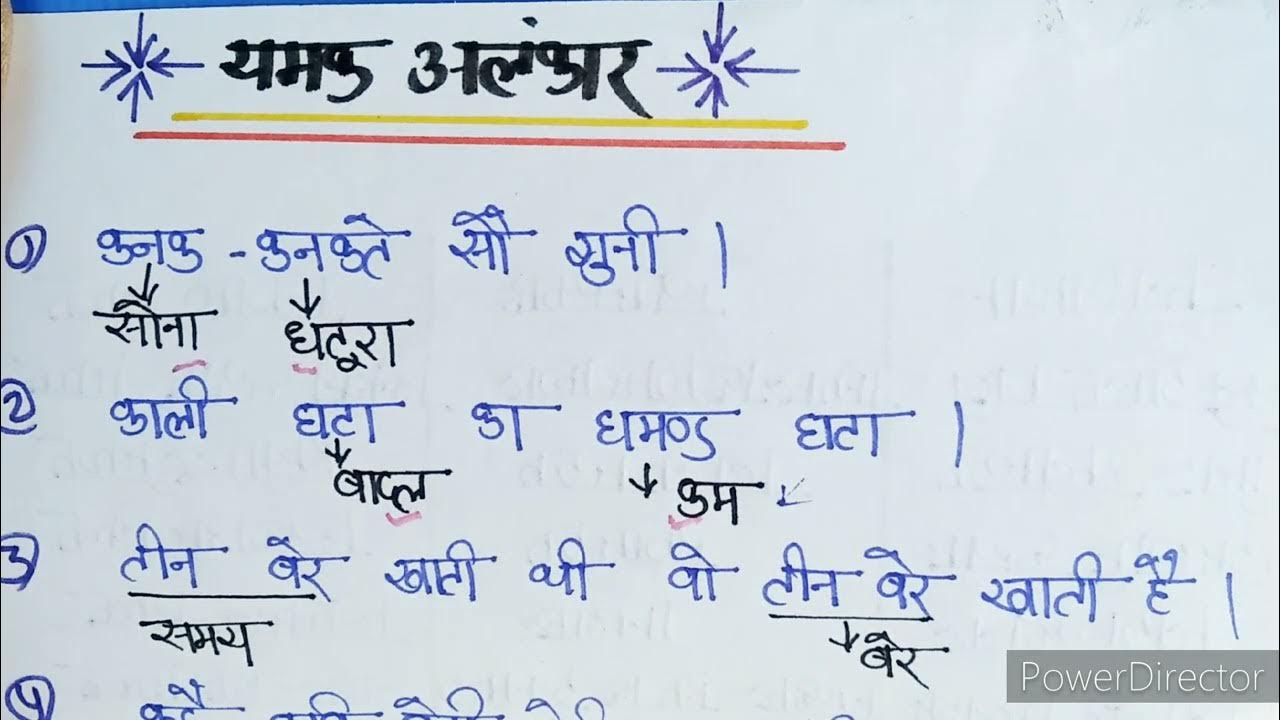 यमक अलंकार
① कनक - कनकते सौं गुनी |
सौना धैटूरा
② काली घटा का घमण्ड घटा |
बाप्ल कम
3 तीन बेर खाती थी वो तीन बेर खाती है |
समय बेर
PowerDirector